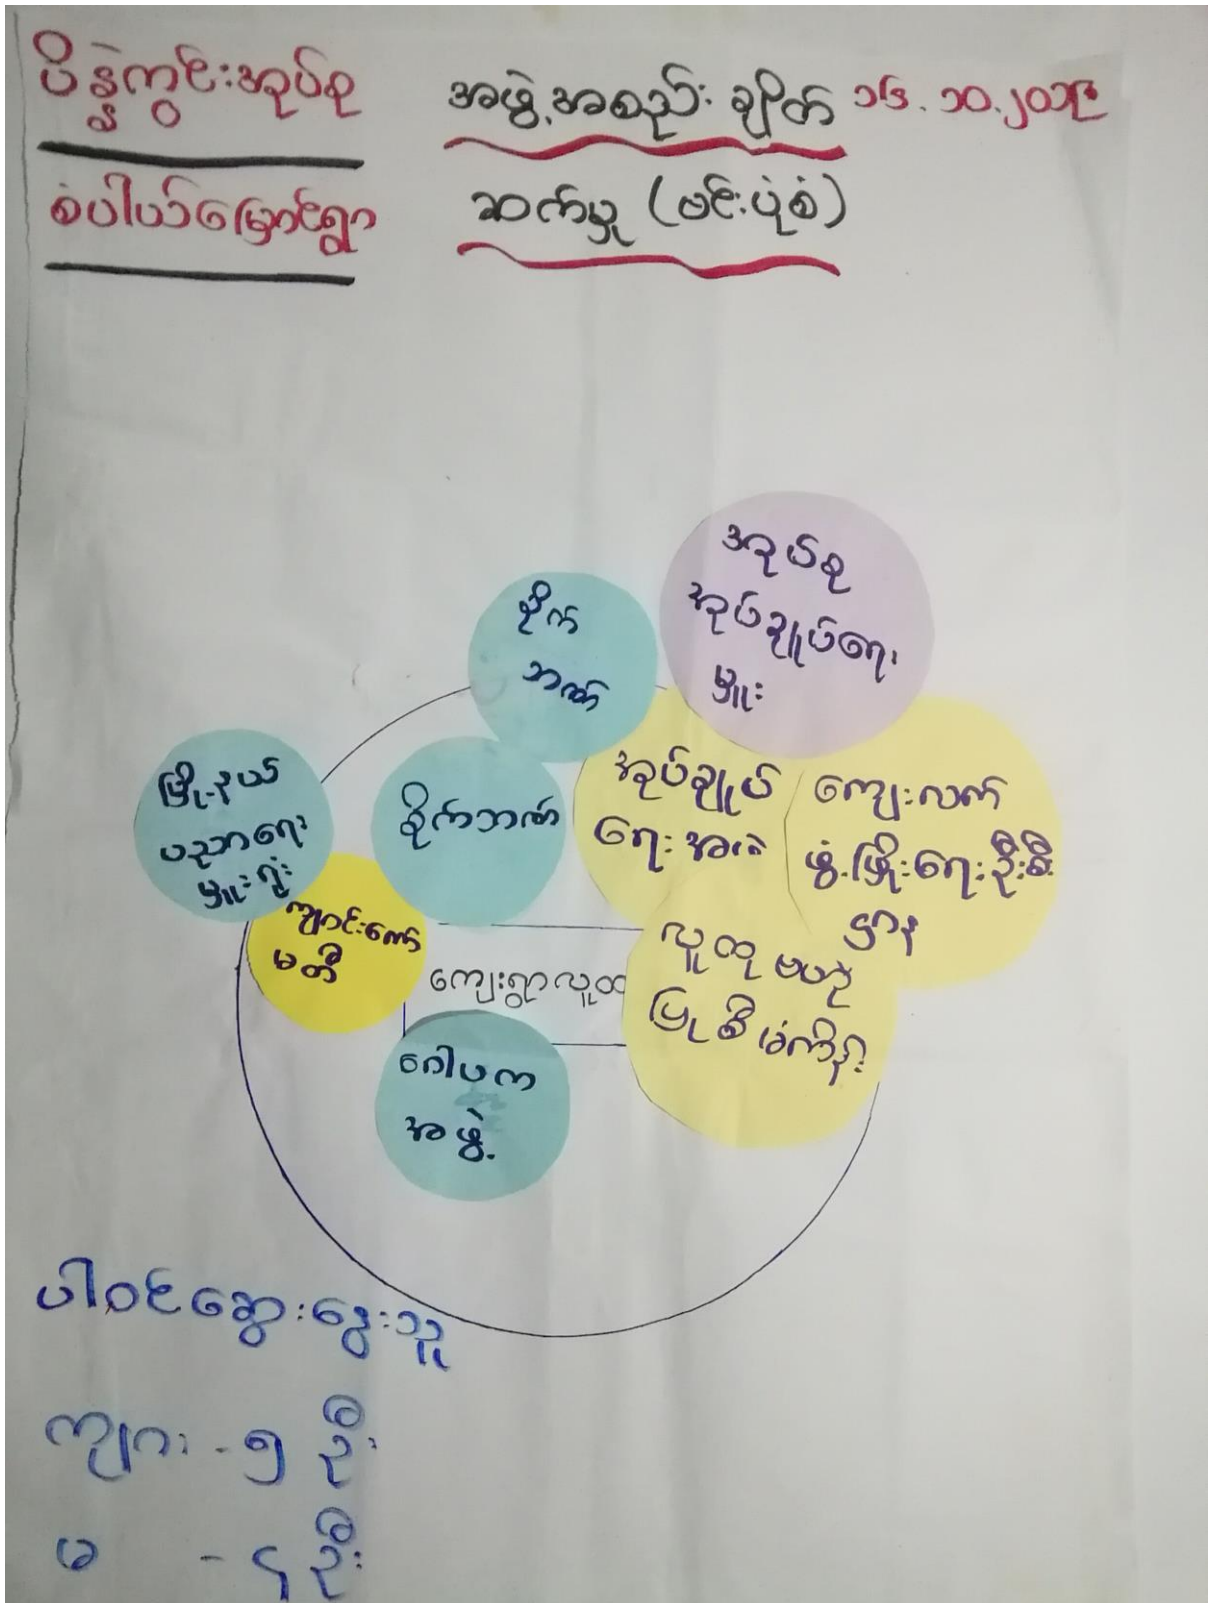 ပိန္နဲကွင်းအုပ်စု
စံပါယ်မြှောင်ရွာ
အဖွဲ့အစည်း ချိတ် ၁၆.၁၀.၂၀၁၉
ဆက်မှု (ဗင်းပုံစံ)
အုပ်စု
အုပ်ချုပ်ရေး
မှူး
စိုက်
ဘဏ်
မြို့နယ်
ပညာရေး
မှူးရုံး
စိုက်ဘဏ်
အုပ်ချုပ်
ရေးအဖွဲ့
ကျေးလက်
ဖွံ့ဖြိုးရေးဦးစီး
ဌာန
ကျောင်းကော်
မတီ
ကျေးရွာလူထု
လူထုဗဟို
ပြုစီမံကိန်း
ဂေါပက
အဖွဲ့
ပါဝင်ဆွေးနွေးသူ
ကျား - ၅ ဦး
မ - ၄ ဦး